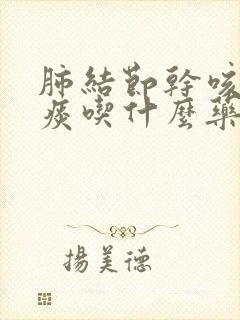 肺結節幹咳
痰喫什麼藥
揚美德